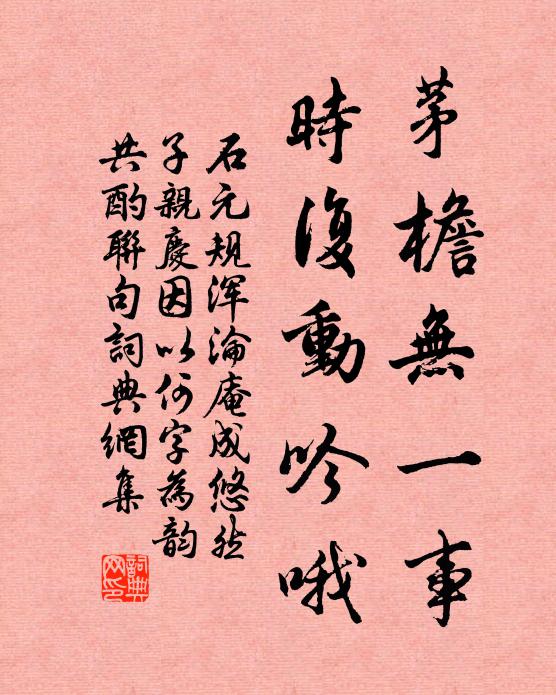 茅檐無一事
時復動吟哦
石元規渾淪庵成悠然
子親慶因以何字為韵
共酌聯句詞典網集
詞典网印